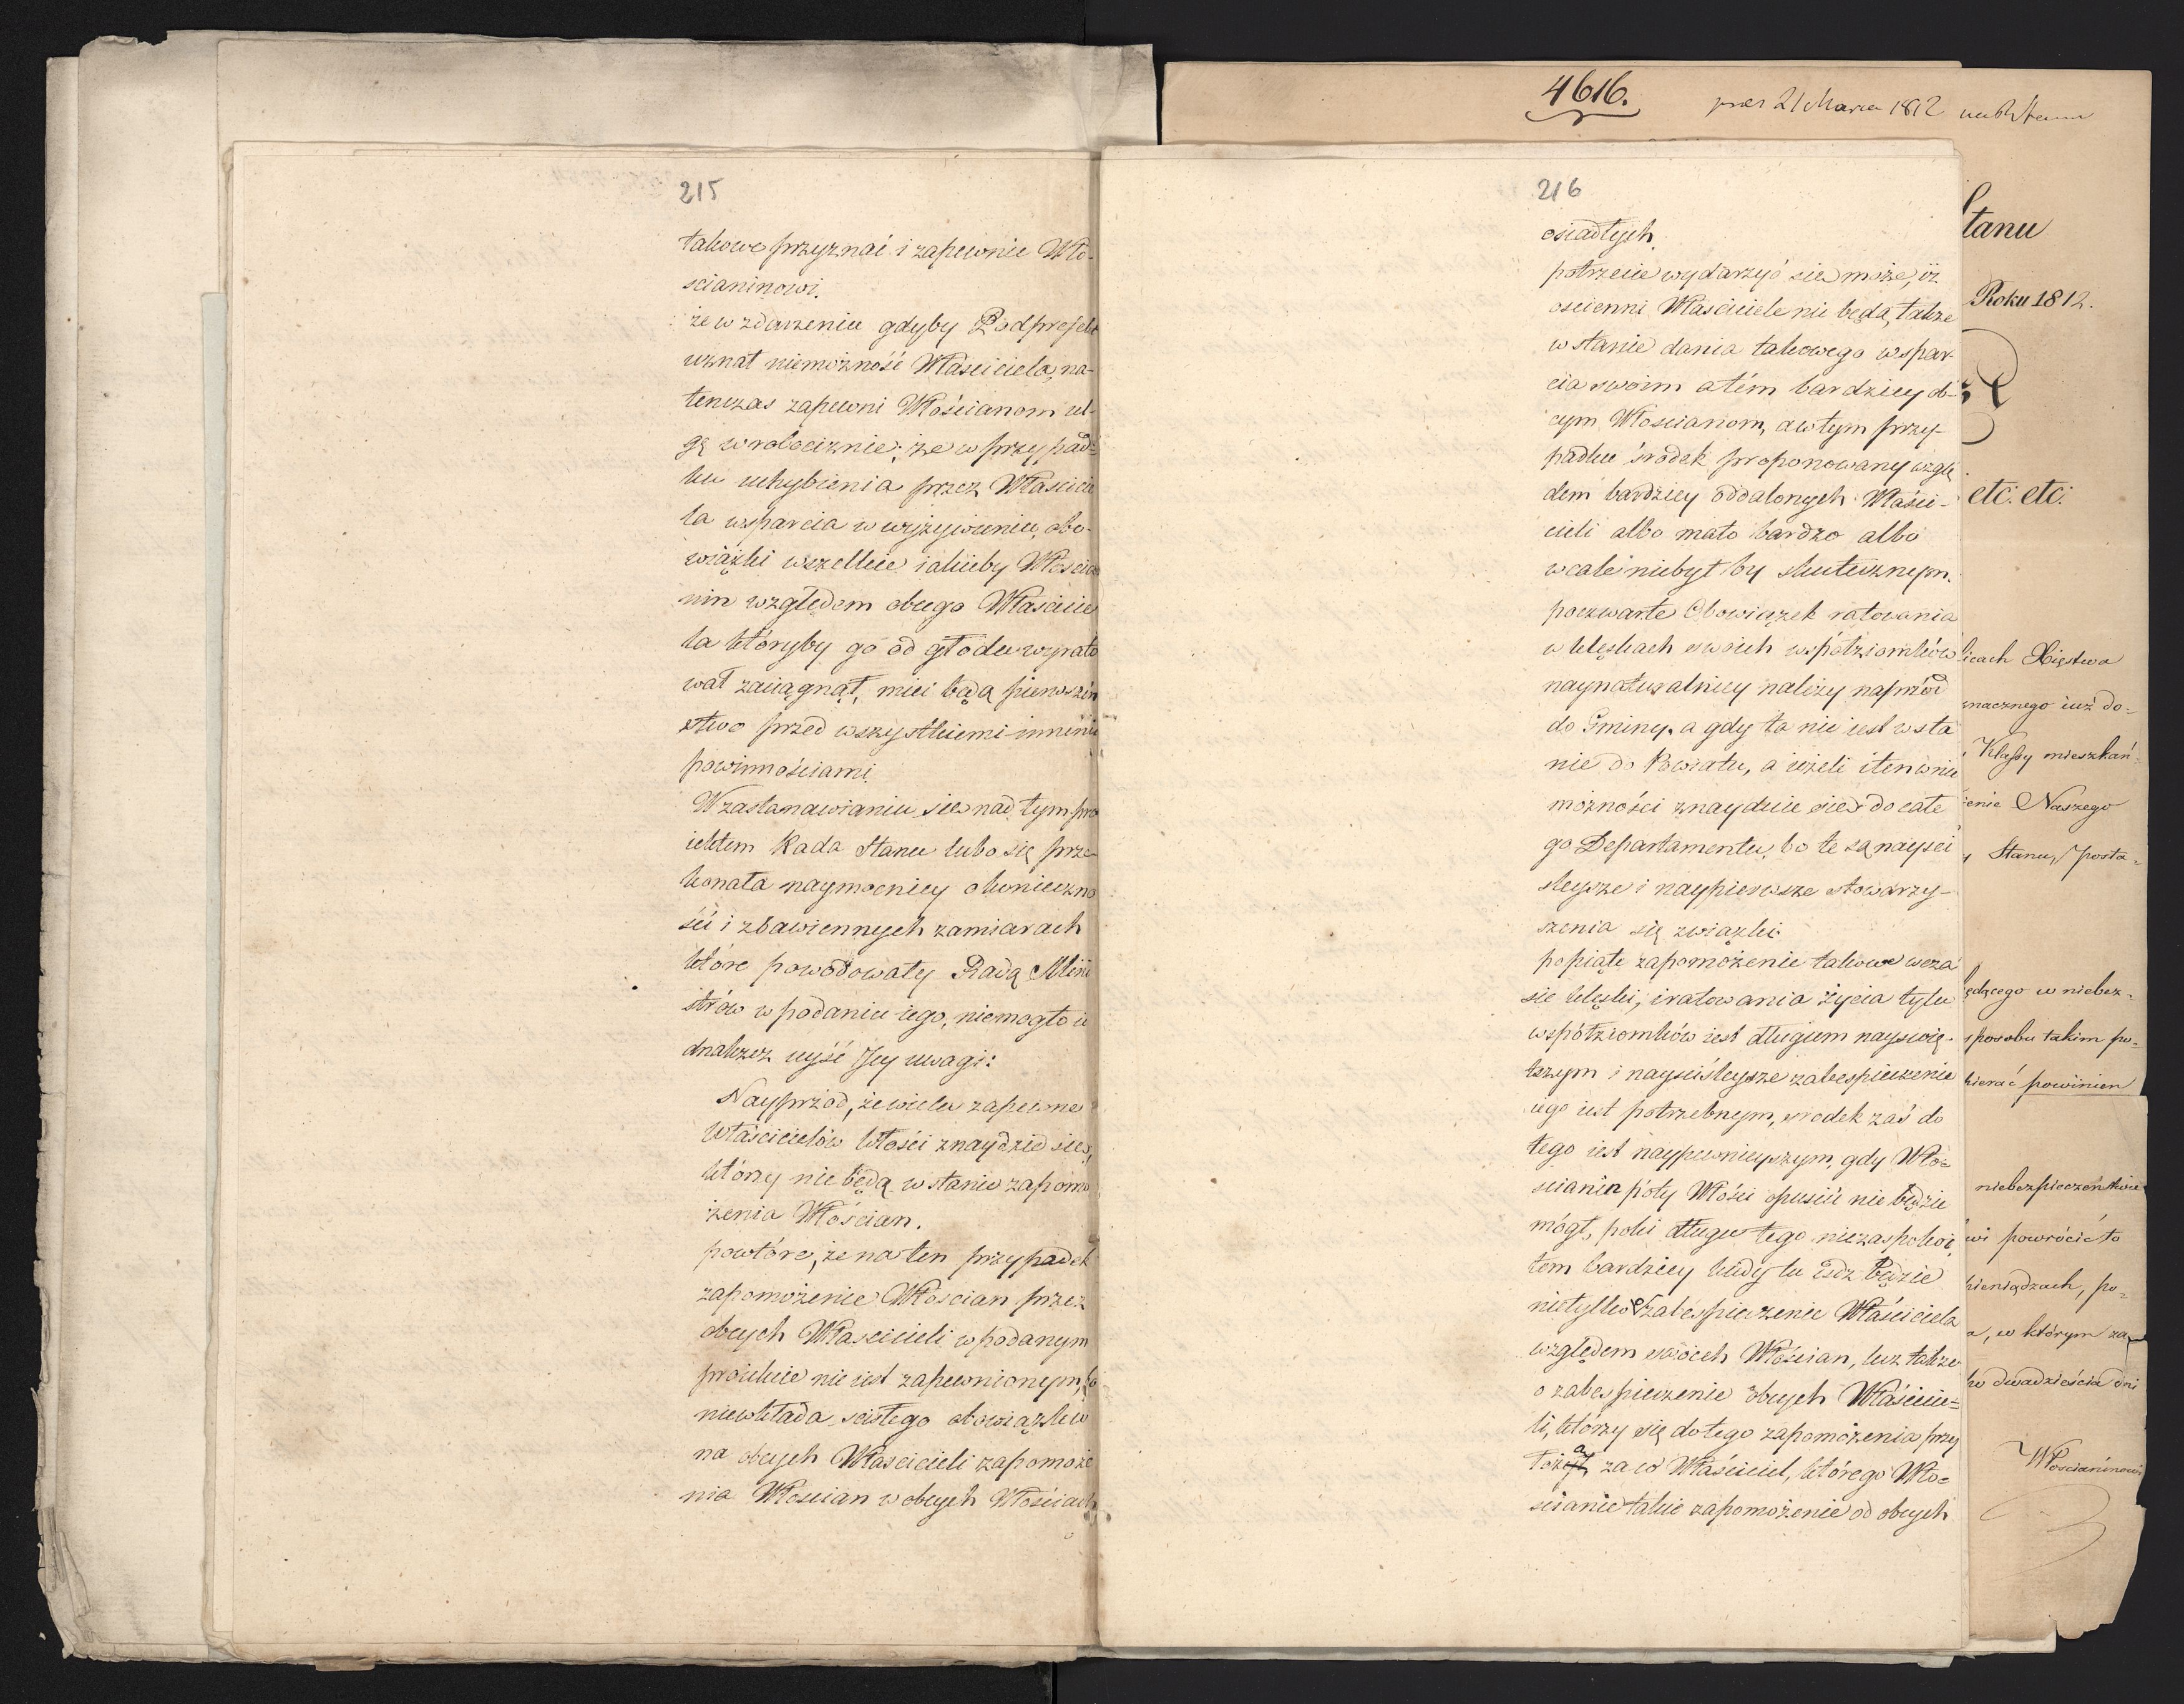 215
takowe przyznać i zapewnić Wło-
scianinowi.
że w zdarzeniu gdyby Podprefekt
uznał niemożność Właściciela, na-
tenczas zapewni Włościanom ul-
gę w robociznie; że w przypad-
ku uchybienia przez Właścicie
la wsparcia w wyżywieniu, obo-
wiązki wszelkie iakieby Włościa
nin względem obcego Właścicie
la któryby go od głodu wyrato
wał zaciągnął, mieć będą pierwszeń
stwo przed wszystkiemi innemi
powinnościami.
W zastanawianiu się nad tym pro
iektem Rada Stanu lubo się prze-
konała naymocniey o konieczno
ści i zbawiennych zamiarach
które powodowały Radą Mini
strów w podaniu iego, niemogło ie
dnakże uyść Jey uwagi:
Nayprzód, że wielu zapewne
Właścicielów Włości znaydzie się,
którzy nie będą w stanie zapomo
żenia Włościan.
powtóre, że na ten przypadek
zapomożenie Włościan przez
obcych Właścicieli w podanym
proiekcie nie iest zapewnionym, bo
niewkłada scisłego obowiązku
na obcych Właścicieli zapomoże
nia Włościan w obcych Włościach
216
osiadłych.
potrzecie wydarzyć się może, iż
oscienni Właściciele nie będą, także
w stanie dania takowego wspar-
cia swoim a tém bardziey ob-
cym Włoscianom, a w tym przy-
padku środek proponowany wzglę
dem bardziey oddalonych Właści-
cieli albo mało bardzo albo
wcale niebył by skutecznym.
poczwarte Obowiązek ratowania
w klęskach swoich współziomków
naynaturalniey należy naprzód
do Gminy, a gdy ta nie iest w sta
nie do Powiatu, a ieżeli i ten w nie
możności znayduie się do całe
go Departamentu, bo te są nayści
śleysze i naypierwsze stowarzy-
szenia się związki.
popiąte zapomożenie takowe w cza
sie klęski, i ratowania życia tylu
współziomków iest długiem nayświę-
tszym i nayściśleysze zabespieczenie
iego iest potrzebnym, srodek zaś do
tego iest naypewnieyszym, gdy Wło-
scianin póty Włości opuścić nie będzie
mógł, póki długu tego niezaspokoi,
tem bardziey kiedy tu iść będzie
nietylko o zabespieczenie Właściciela
względem swoich Włościan, lecz także
o zabespieczenie obcych Właścicie-
li, którzy się do tego zapomożenia przy
łożą, za co Właściciel, którego Wło-
ścianie takie zapomożenie od obcych
4616.
21 Marca 1812
Stanu
Roku 1812.
etc. etc.
licach Xięstwa
znacznego iuż do-
Klassy mieszkań-
Naszego
Stanu, posta-
będącego w niebez-
sposobu takim po-
bierać powinien
niebezpieczeństwie
powrócić to
pieniądzach, po-
a, w którym za
dwadzieścia dni
Włościaninowi